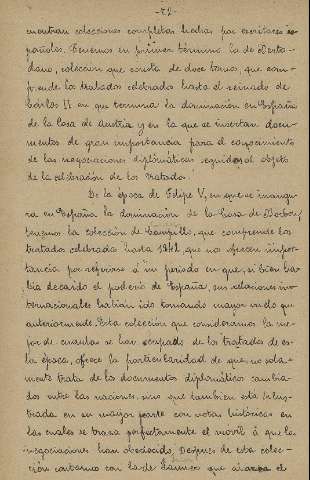 -52-
cuentran colecciones completas hechas por escritores es-
pañoles. Tenemos en primer término la de Berto-
dano, coleccion que consta de doce tomos, que com-
prende los tratados celebrados hasta el reinado de
Carlos II en que termina la dominación en España
de la Casa de Austria y en la que se insertan docu-
mentos de gran importancia para el conocimiento
de las negociaciones diplomáticas seguidas al objeto
de la celebración de los tratados.
De la época de Felipe V, en que se inaugu-
ra en España la dominación de la Casa de Borbon,
tenemos la colección de Campillo, que comprende los
tratados celebrados hasta que no ofrecen impor-
tancia por referirse á un periodo en que, si bien ha-
bia decaido el poderio de España, sus relaciones in-
ternacionales habian ido tomando mayor vuelo que
anteriormente. Esta colección que consideramos la me-
jor de cuantas se han ocupado de los tratados de es-
ta época, ofrece la particularidad de que no sola-
mente trata de los documentos diplomáticos cambia-
dos entre las naciones, sino que tambien está ilus-
trada en su mayor parte con notas históricas en
las cuales se traza perfectamente el móvil á que las
negociaciones han obedecido. Despues de esta colec-
ción contamos con la de que abarca el